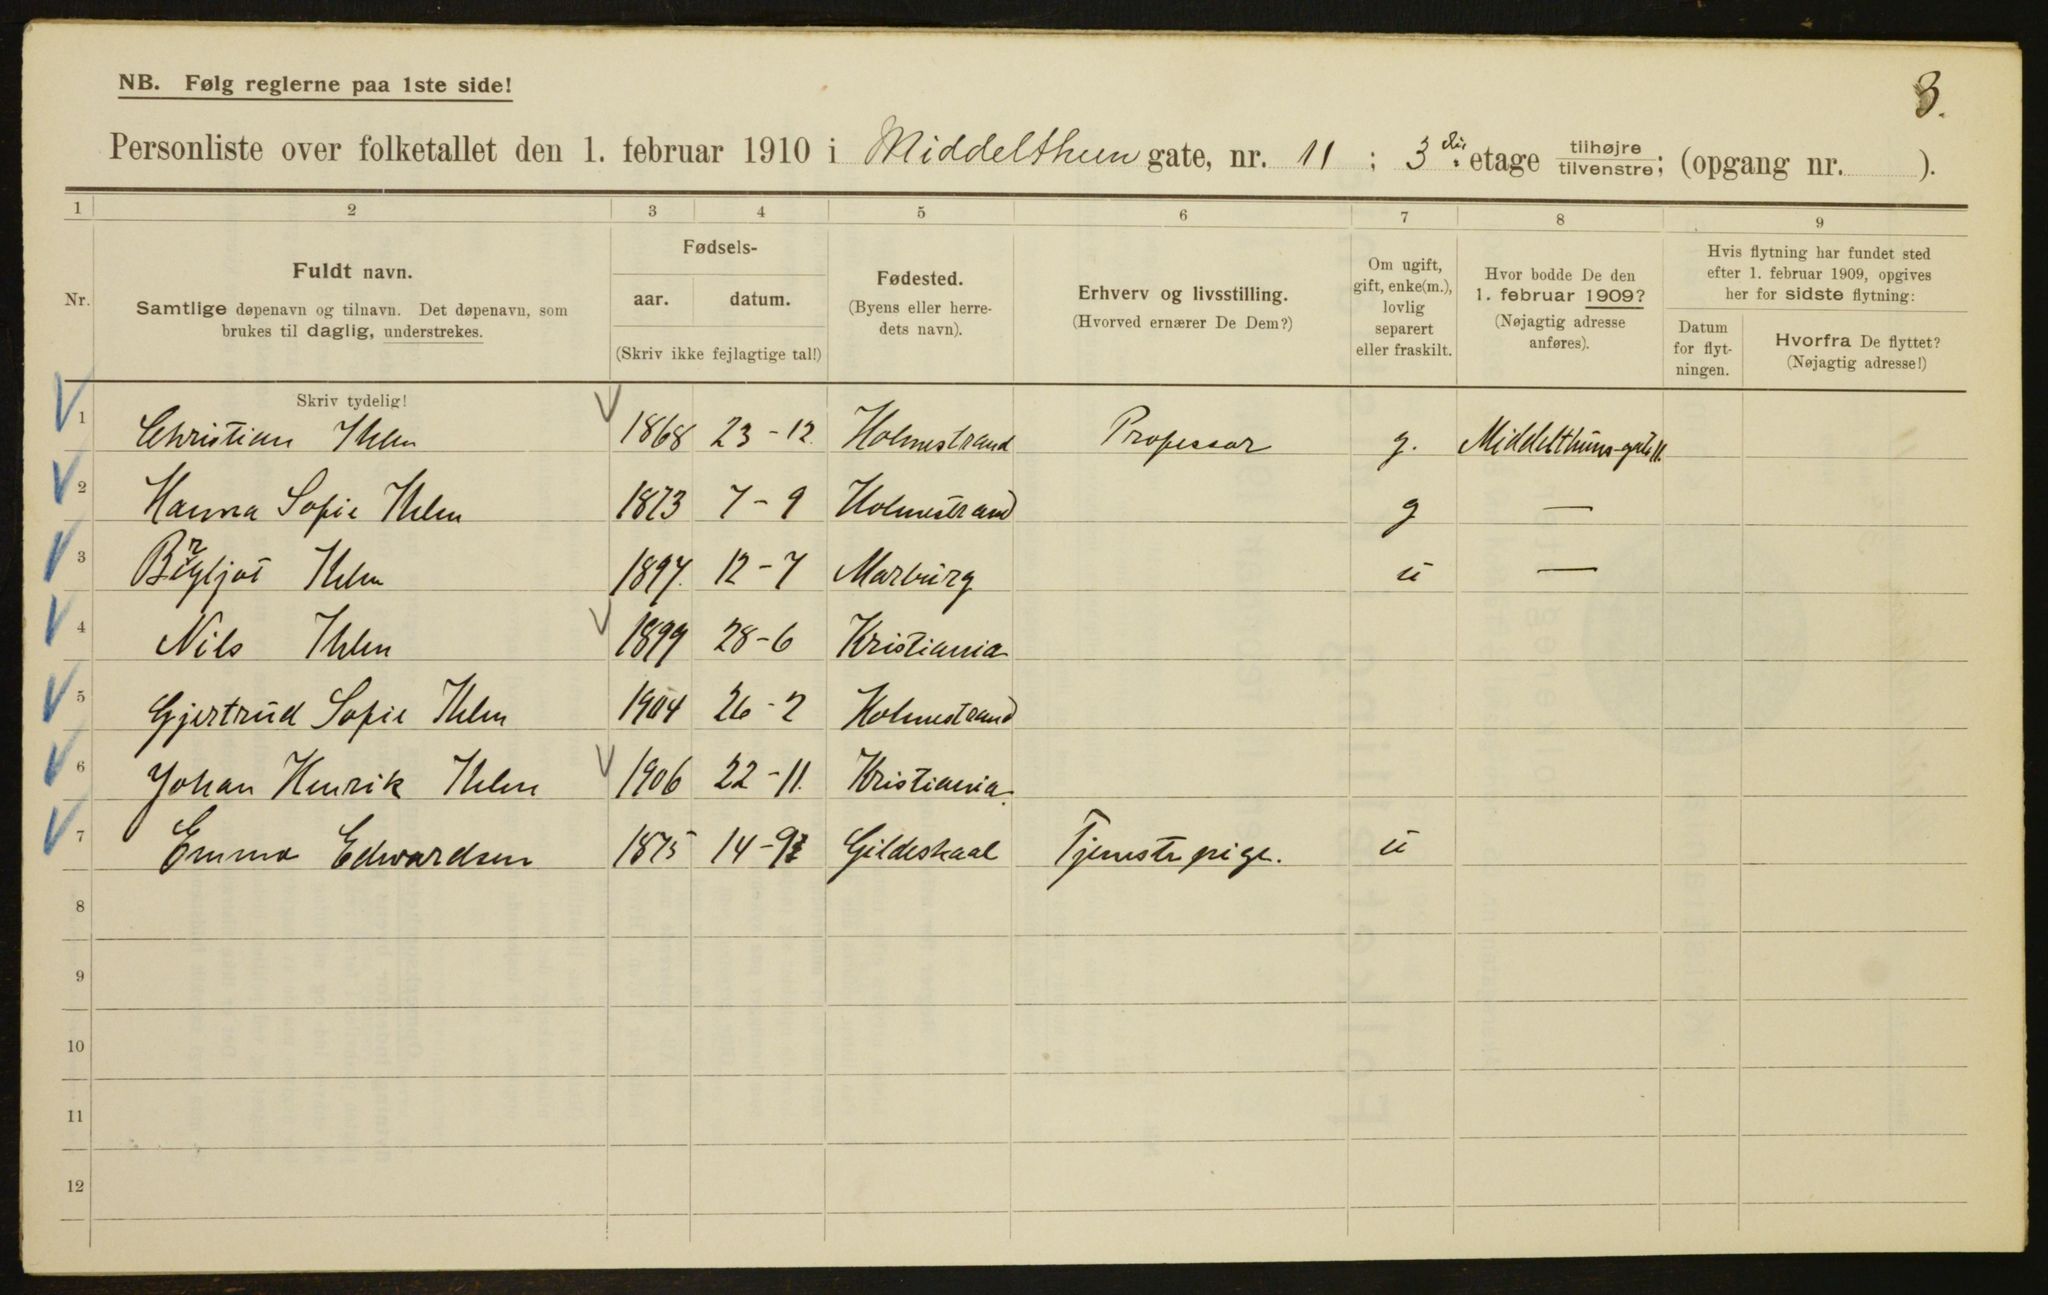 3.
NB. Følg reglerne paa 1ste side!
Personliste over folketallet den 1. februar 1910 i Middelthun gate, nr. 11 ; 3die etage tilhøjre tilvenstre; (opgang nr. ).
1 2 3 4 5 6 7 8 9
Nr.
Fuldt navn.
Samtlige døpenavn og tilnavn. Det døpenavn, som
brukes til daglig, understrekes.
Fødsels-
aar. datum.
(Skriv ikke fejlagtige tal!)
Fødested.
(Byens eller herre-
dets navn).
Erhverv og livsstilling.
(Hvorved ernærer De Dem?)
Om ugift,
gift, enke(m.),
lovlig
separert
eller fraskilt.
Hvor bodde De den
1. februar 1909?
(Nøjagtig adresse
anføres).
Hvis flytning har fundet sted
efter 1. februar 1909, opgives
her for sidste flytning:
Datum
for flyt-
ningen.
Hvorfra De flyttet?
(Nøjagtig adresse!)
Skriv tydelig!
1 Christian Ihlen 1868 23-12. Holmestrand Professor g. Middelthuns-gate 11.
2 Hanna Sofie Ihlen 1873 7-9 Holmestrand g —
3 Bergljot Ihlen 1897. 12-7 Marburg u —
4 Nils Ihlen 1899 28-6 Kristiania
5 Gjertrud Sofie Ihlen 1904 26-2 Holmestrand
6 Johan Henrik Ihlen 1906 22-11. Kristiania.
7 Emma Edwardsen 1875 14-9 Gildeskaal Tjenestepige. u
8
9
10
11
12